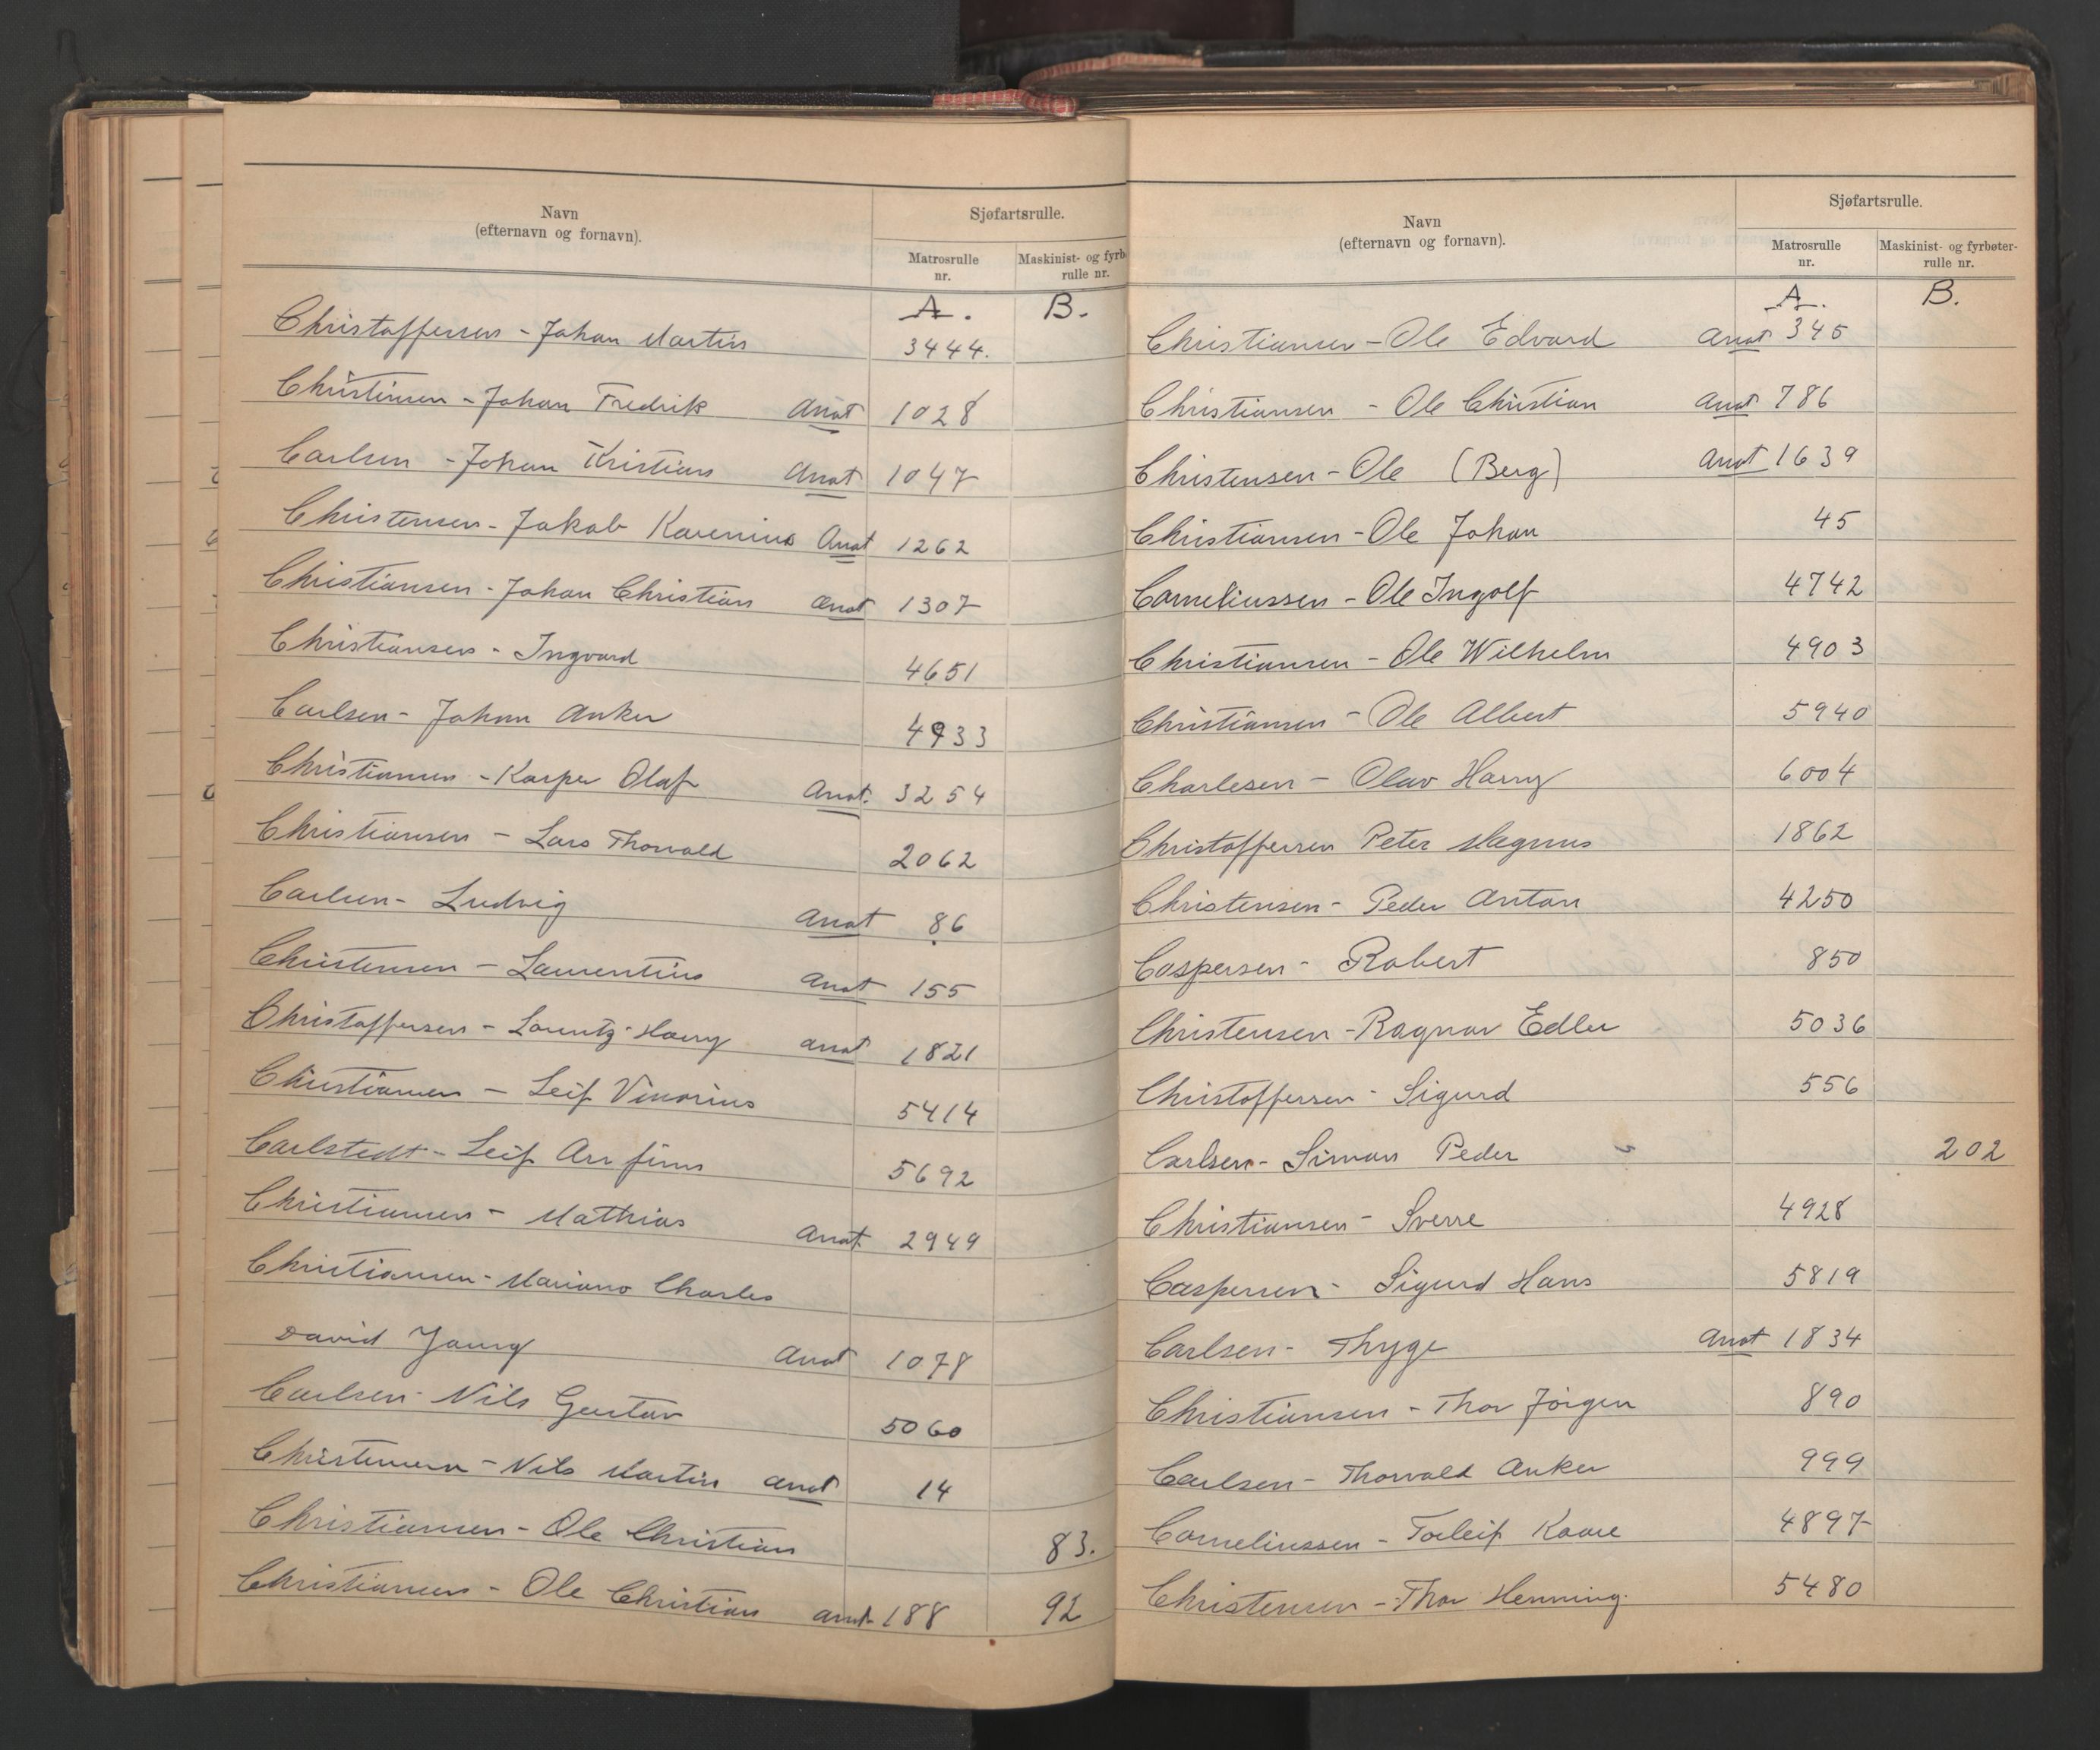 Navn
(efternavn og fornavn).
Sjøfartsrulle.
Matrosrulle
nr.
Maskinist- og fyrbø
rulle nr.
A. B.
Christoffersen - Johan Martin 3444.
Christensen - Johan Fredrik Anot 1028
Carlsen - Johan Kristian Anot 1047
Christensen - Jakob Karenius Anot 1262
Christiansen - Johan Christian Anot 1307
Christiansen - Ingvard 4651
Carlsen - Johan Anker 4933
Christiansen - Kasper Olaf Anot. 3254
Christiansen - Lars Thorvald 2062
Carlsen - Ludvig Anot 86
Christensen - Laurentius Anot 155
Christoffersen - Lorentz Harry anot 1821
Christiansen - Leif 5414
Carlstedt - Leif Arn finn 5692
Christiansen - Mathias Anot. 2949
Christiansen - Mariano Charles
David Young Anot 1078
Carlsen - Nils Gustav 5060
Christensen - Nils Martin anot 14
Christiansen - Ole Christian 83.
Christiansen - Ole Christian anot. 188 92
Navn
(efternavn og fornavn).
Sjøfartsrulle.
Matrosrulle
nr.
Maskinist- og fyrbøter-
rulle nr.
A. B.
Christiansen - Ole Edvard Anot 345
Christiansen - Ole Christian Anot 786
Christensen - Ole (Berg) Anot 1639
Christiansen - Ole Johan 45
Corneliussen - Ole Ingolf 4742
Christiansen - Ole Wilhelm 4903
Christiansen - Ole Albert 5940
Charlesen - Olav Harry 6004
Christoffersen Peter Magnus 1862
Christensen - Peder Anton 4250
Caspersen - Robert 850
Christensen - Ragnar Edler 5036
Christoffersen - Sigurd 556
Carlsen - Simon Peder 202
Christiansen - Sverre 4928
Caspersen - Sigurd Hans 5819
Carlsen - Thyge Anot 1834
Christiansen - Thor Jörgen 890
Carlsen - Thorvald Anker 999
Corneliussen - Torleif Kaare 4897
Christensen - Thor Henning. 5480